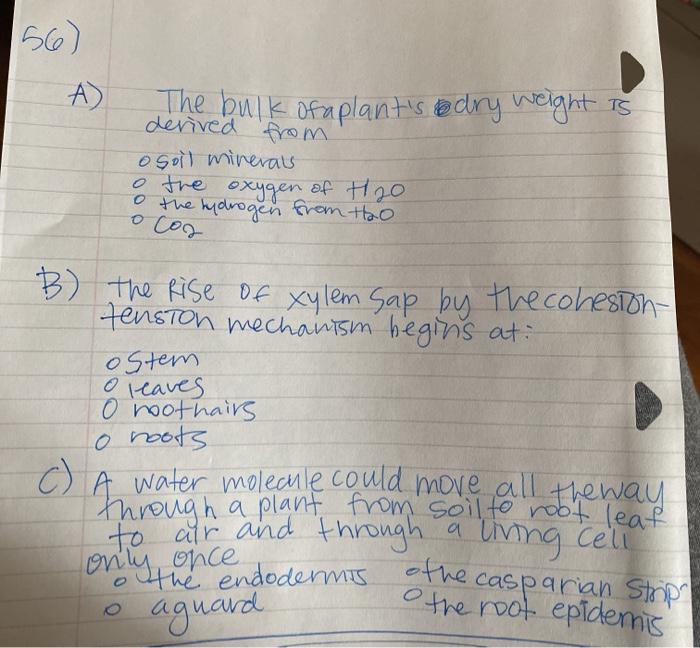 56)
A) The bulk of a plant's dry weight is
derived from
o soil minerals
o the oxygen of H20
o the hydrogen from H20
o CO2
B) the Rise of xylem sap by the cohesion-
tension mechanism begins at:
o Stem
o leaves
o root hairs
o roots
C) A water molecule could move all the way
through a plant from soil to root leaf
to air and through a living cell
only once
o the endodermis o the casparian strip
o a guard o the root epidemis